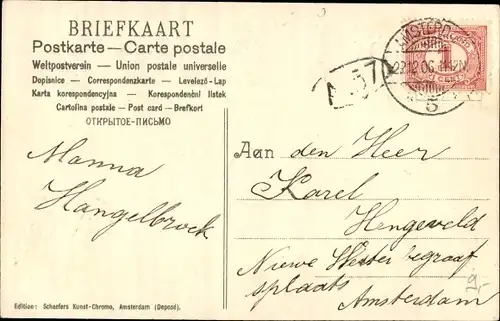 BRIEFKAART
Postkarte — Carte postale
Weltpostverein — Union postale universelle
Dopisnice — Correspondenzkarte — Levelező-Lap
Karta korespondencyjna — Korespondenční listek
Cartolina postale — Post card — Brefkort
ОТКРЫТОЕ-ПИСЬМО
Manna
Hangelbroek
AMSTERD
22.12.06. 11-12V
5
1
CENT
A 57
Aan den Heer
Karel
Hengeveld
Nieuwe Wester begraaf
splaats
Amsterdam
9,-
Edition: Schaefers Kunst-Chromo, Amsterdam (Deposé).